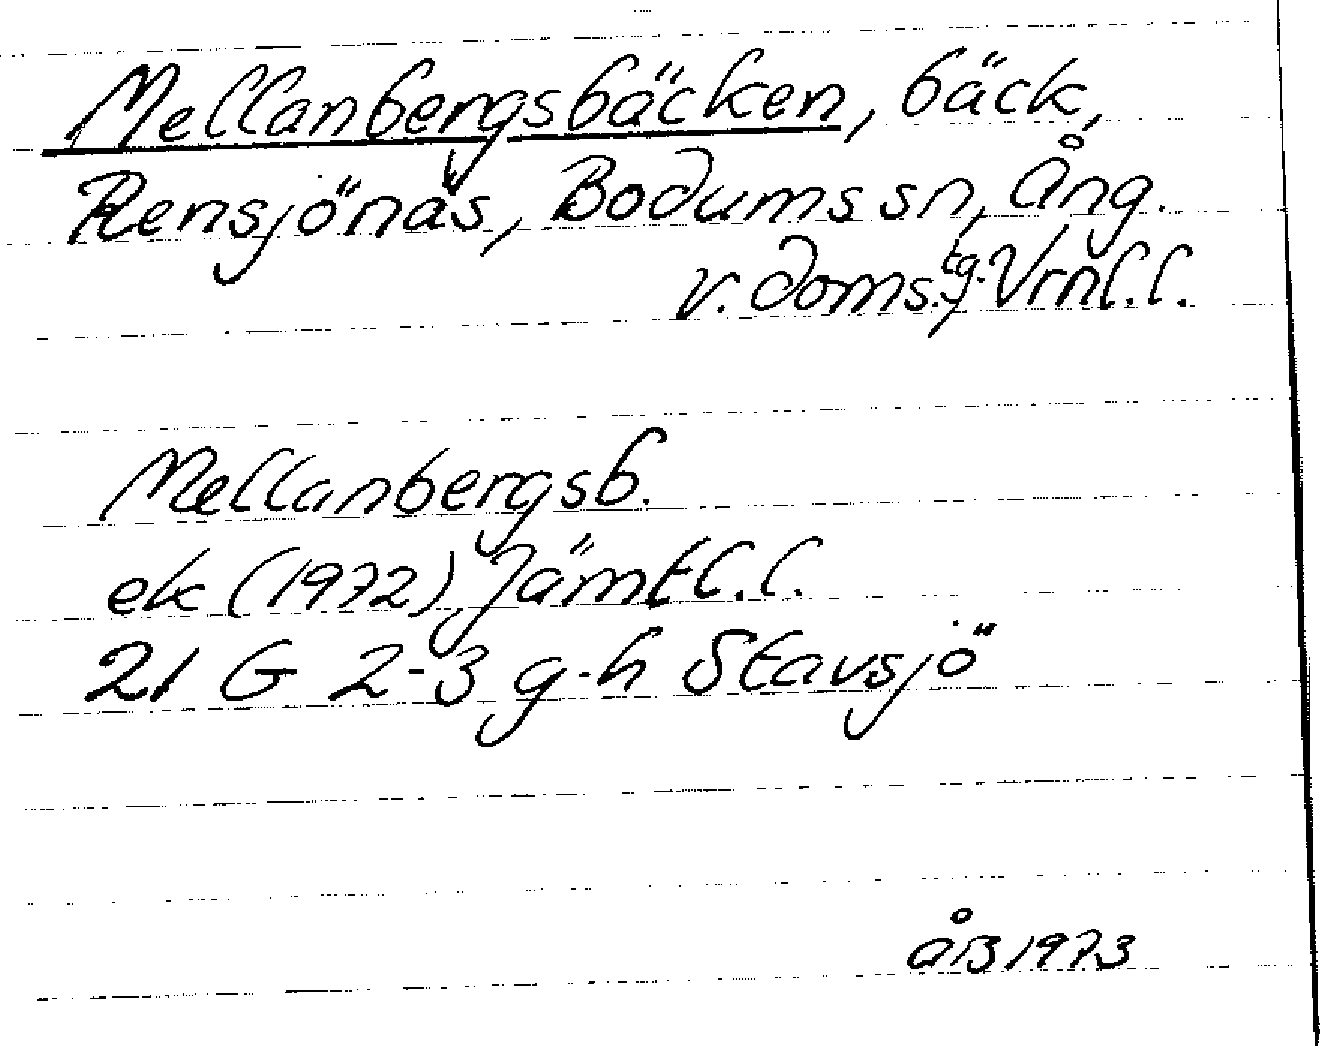 Mellanbergsbäcken, bäck,
Rensjönäs, Bodums sn, Ång.
v. doms.g. Vrnl.l.
Mellanbergsb.
ek (1972), Jämtl.l.
21 G 2-3 g-h Stavsjö
ÅB 1973